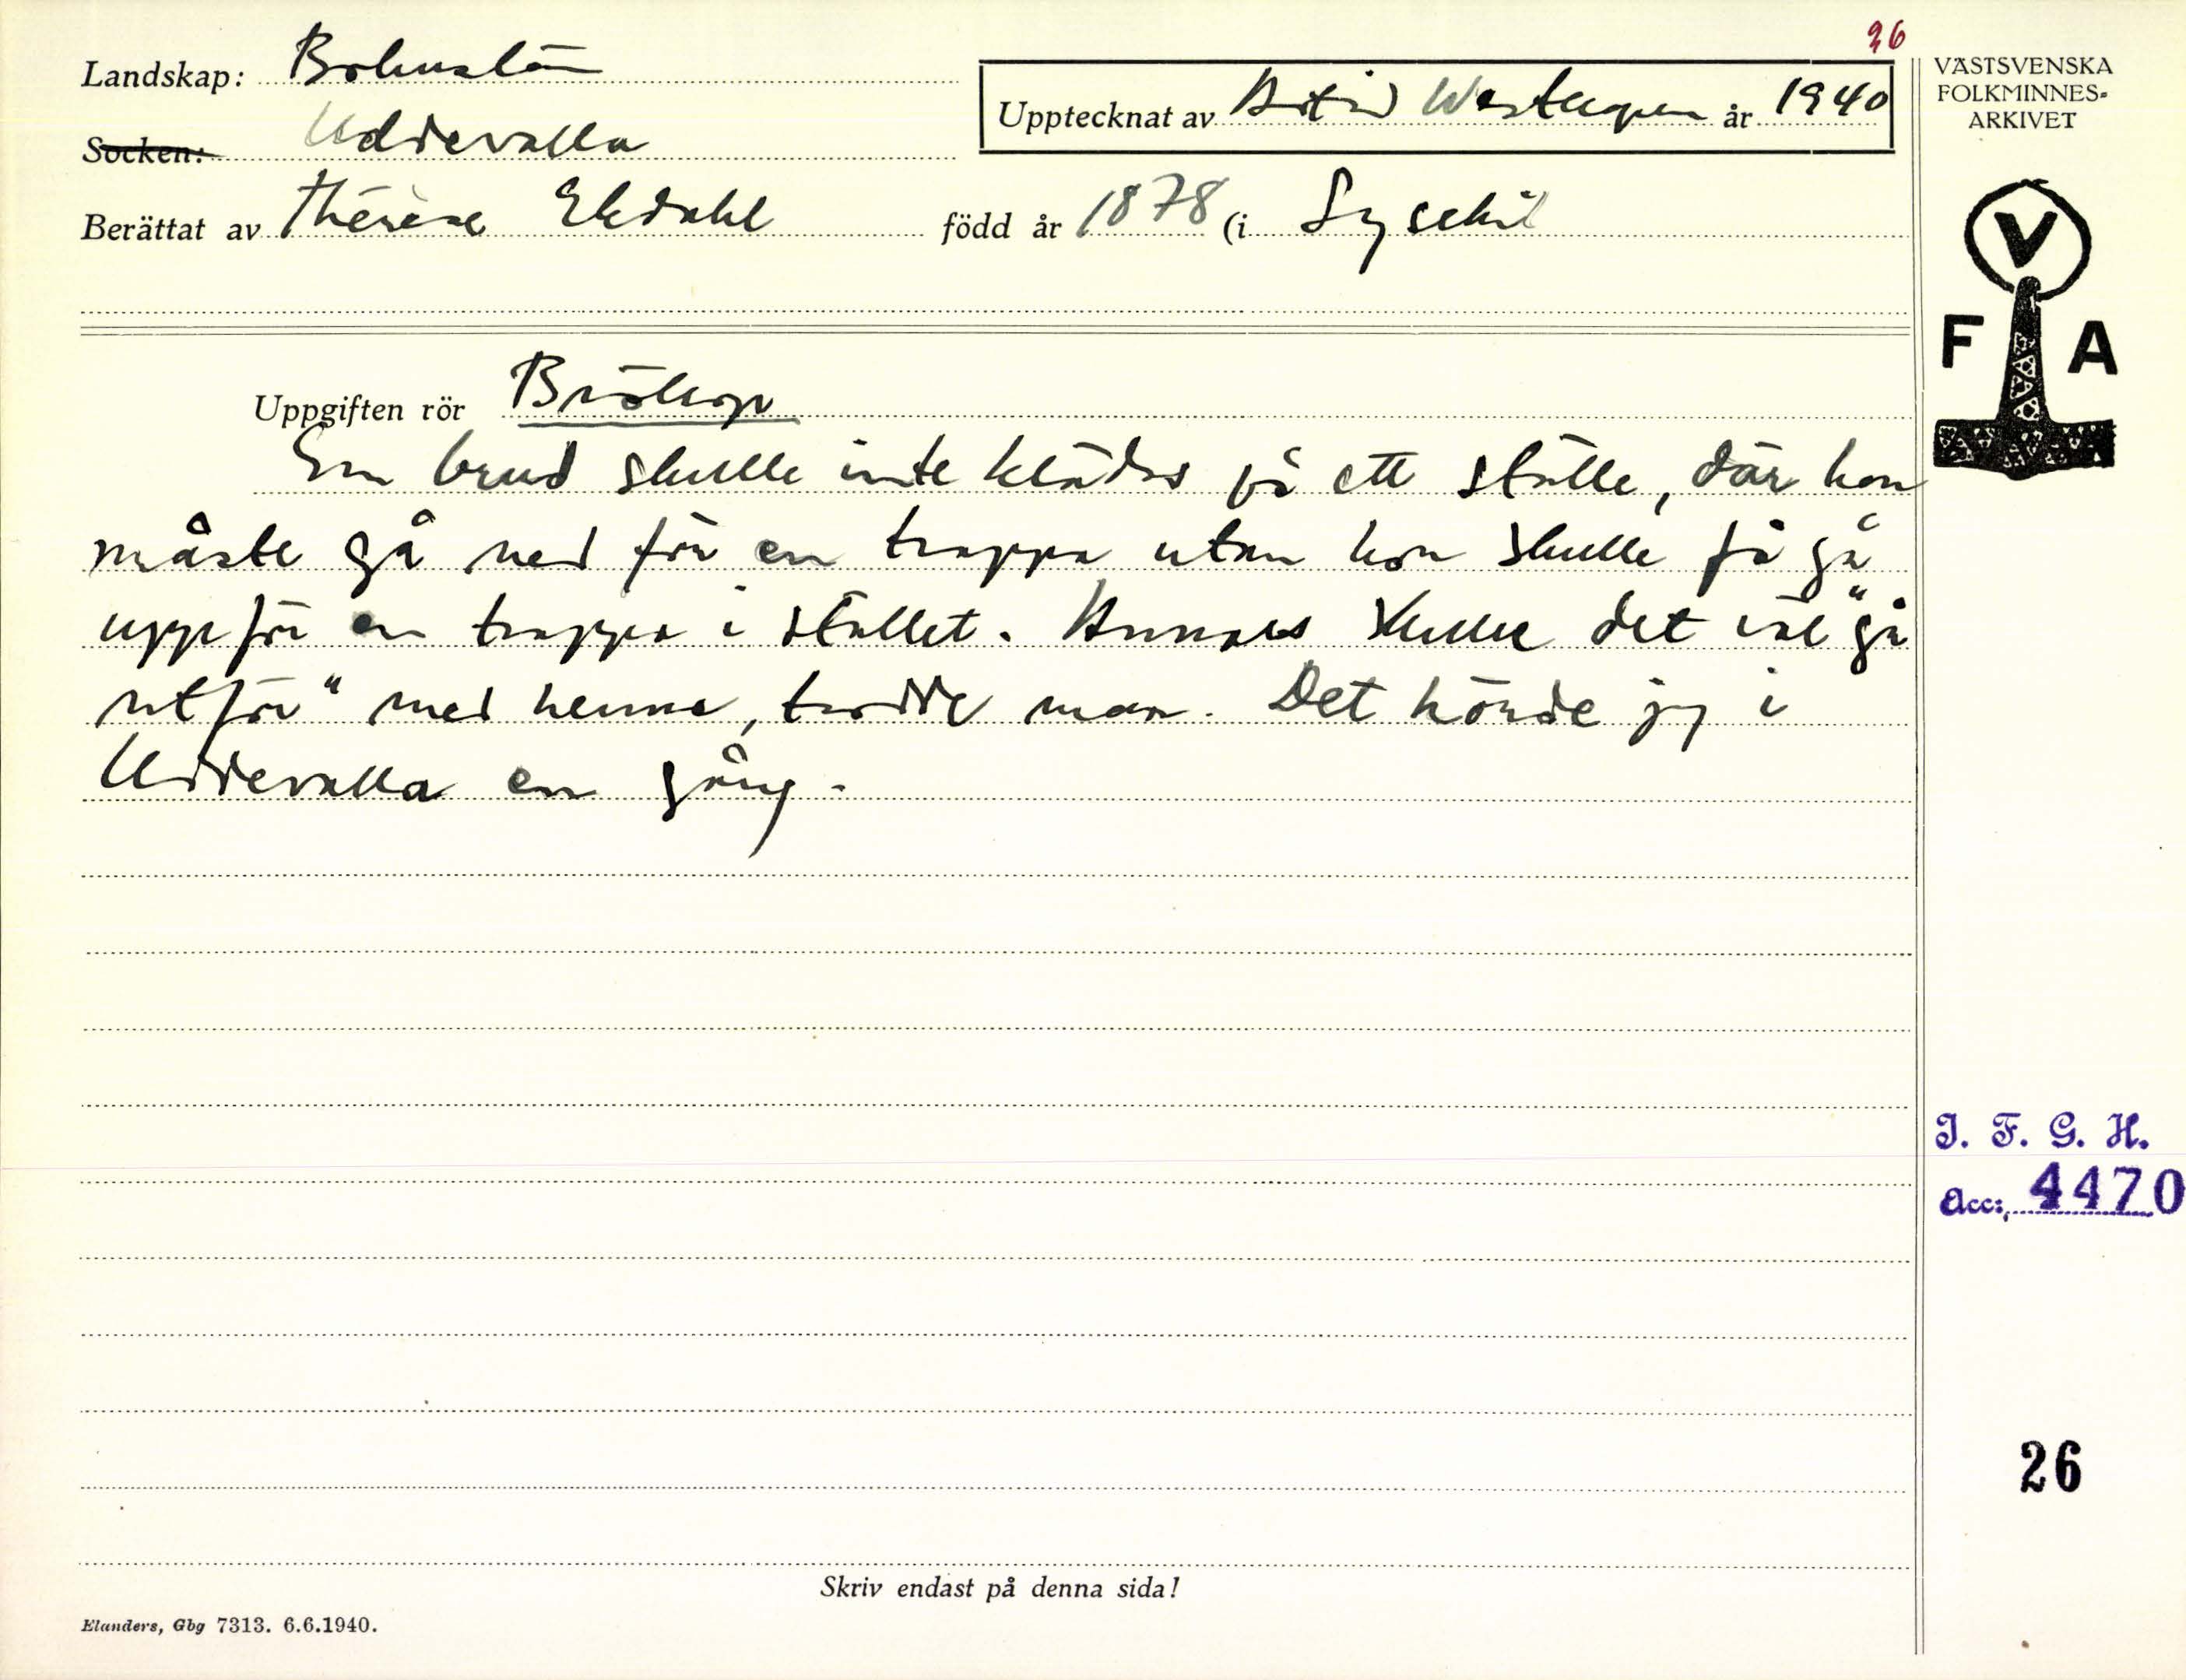 26
Landskap: Bohuslän
Upptecknat av Arvid Westergren år 1940
VÄSTSVENSKA
FOLKMINNES-
ARKIVET
Socken: Uddevalla
Berättat av Thérèse Ekdahl född år 1878 (i Lysekil
V
F A
Uppgiften rör Bröllop
En brud skulle inte klädas på ett ställe, där hon
måste gå ned för en trappa utan hon skulle få gå
uppför en trappa i stället. Annars skulle det väl "gå
utför" med henne, trodde man. Det hörde jag i
Uddevalla en gång.
I. F. G. H.
Acc: 4470
26
Skriv endast på denna sida!
Elanders, Gbg 7313. 6.6.1940.